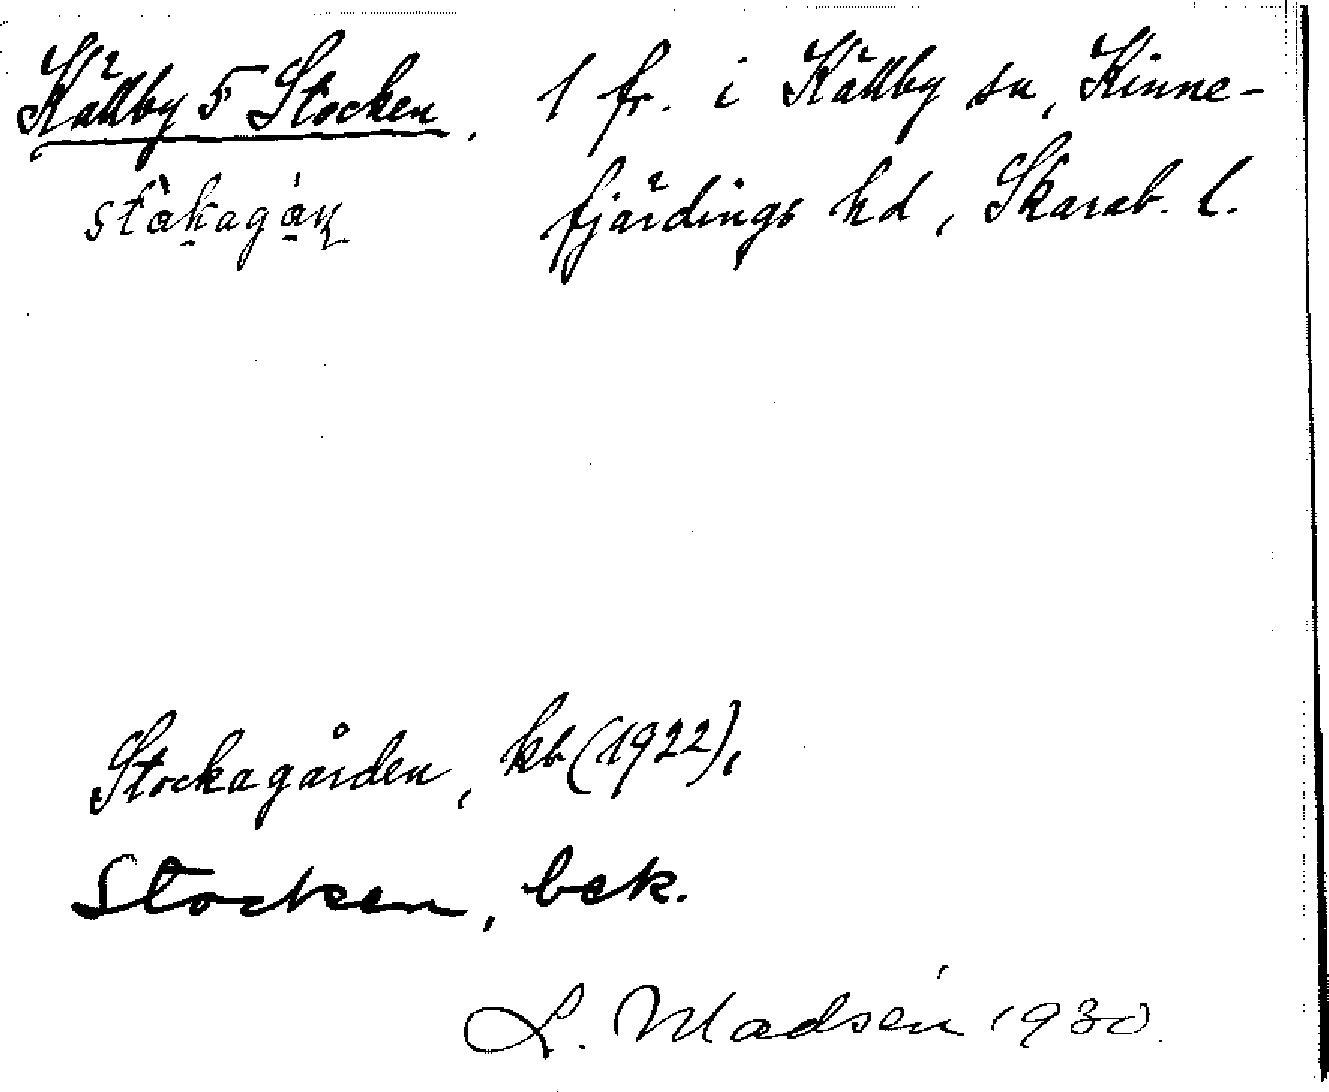 Källby 5 Stocken, 1 fr. i Källby sn, Kinne-
fjärdings hd, Skarab. l.
Stockagården, kb (1922),
Stocken, bek.
L. Madsén 1930.